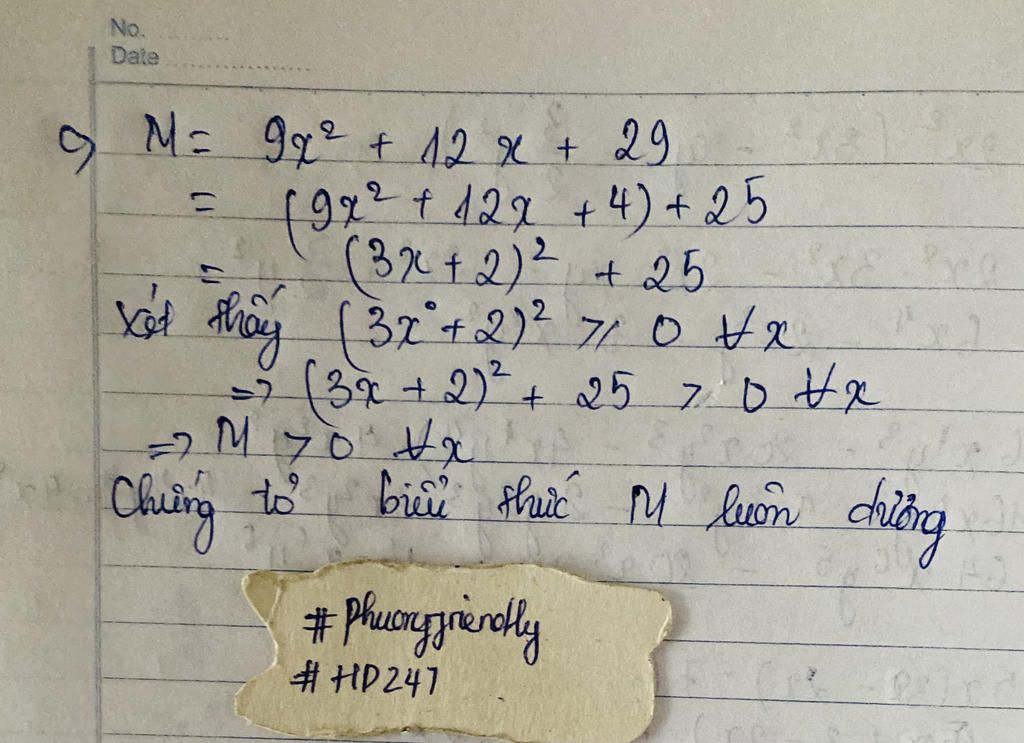 No.
Date
c) M = 9x² + 12x + 29
= (9x² + 12x + 4) + 25
= (3x + 2)² + 25
Xét thấy (3x + 2)² ≥ 0 ∀x
=> (3x + 2)² + 25 > 0 ∀x
=> M > 0 ∀x
Chứng tỏ biểu thức M luôn dương
# Phuongfriendly
# HD247